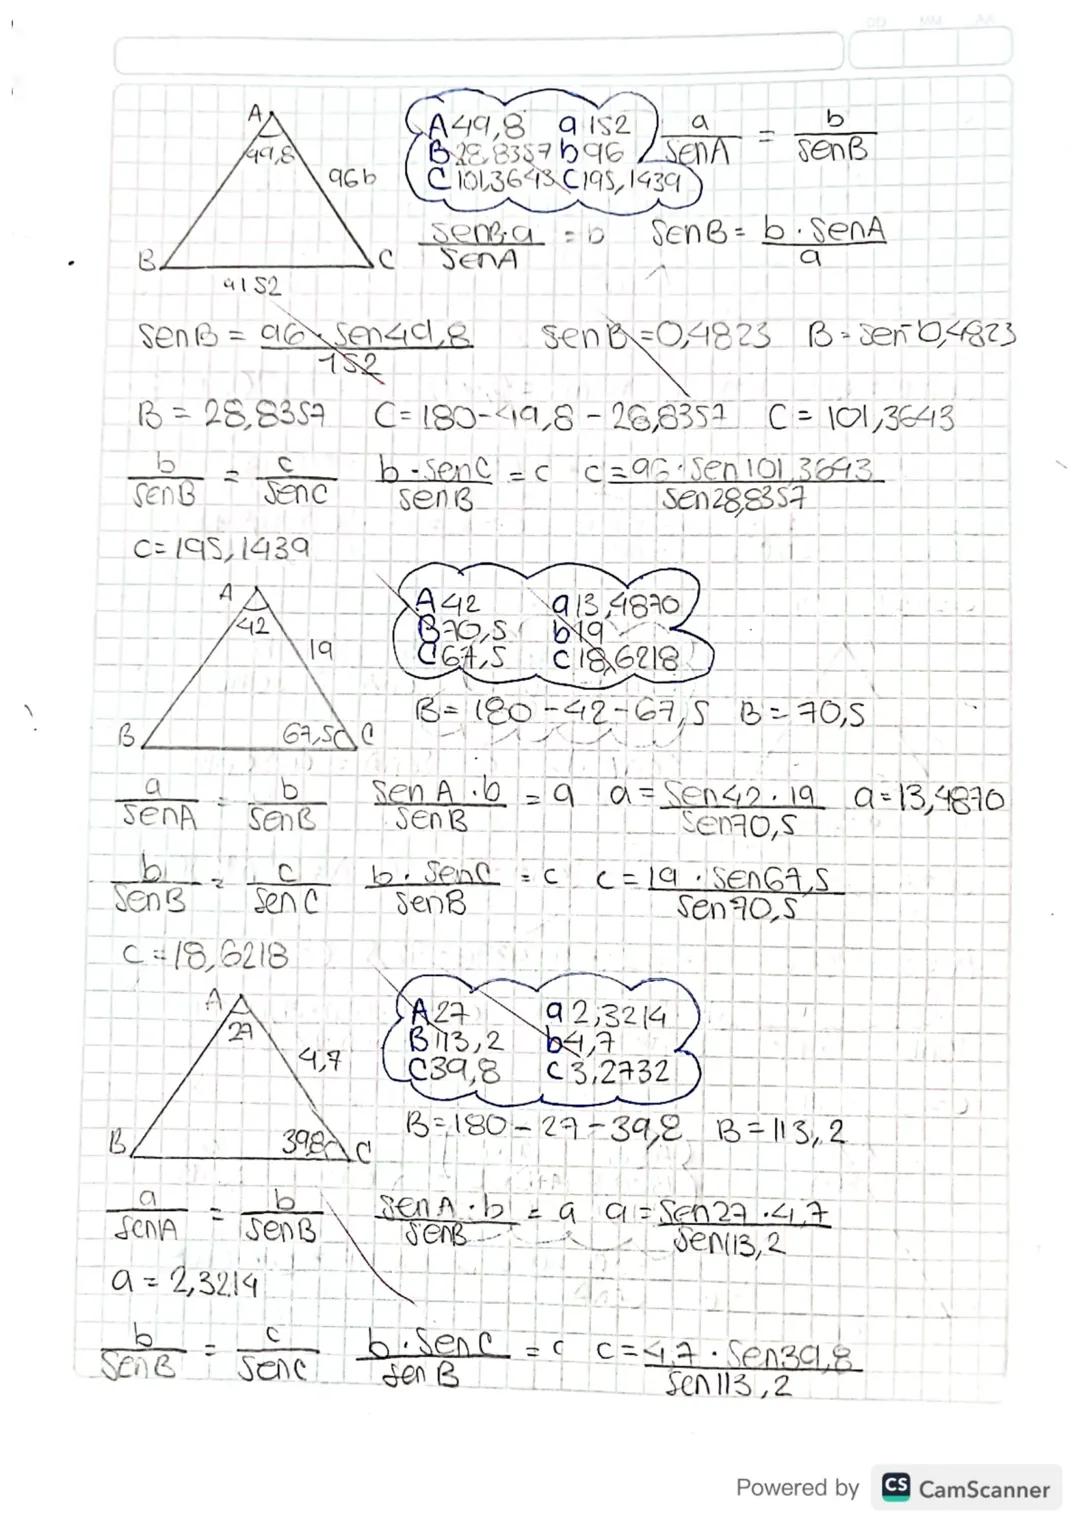 DD MM AA
A
49,8
96b
B
C
a152
A 49,8 a 152
B 28,8357 b 96
C 101,3643 C 195,1439
a/SenA = b/SenB
SenB·a/SenA = b SenB = b·SenA/a
SenB = 96·Sen49,8/152 SenB = 0,4823 B = Sen⁻0,4823
B = 28,8357 C = 180-49,8-28,8357 C = 101,3643
b/SenB = c/SenC b·SenC/SenB = c c = 96·Sen101,3643/Sen28,8357
C = 195,1439
A
42
19
B
67,5
C
A 42 a 13,4870
B 70,5 b 19
C 67,5 C 18,6218
B = 180-42-67,5 B = 70,5
a/SenA = b/SenB SenA·b/SenB = a a = Sen42·19/Sen70,5 a = 13,4870
b/SenB = c/SenC b·SenC/SenB = c c = 19·Sen67,5/Sen70,5
C = 18,6218
A
27
4,7
B
39,8
C
A 27 a 2,3214
B 113,2 b 4,7
C 39,8 C 3,2732
B = 180-27-39,8 B = 113,2
a/SenA = b/SenB SenA·b/SenB = a a = Sen27·4,7/Sen113,2
a = 2,3214
b/SenB = c/SenC b·SenC/SenB = c c = 4,7·Sen39,8/Sen113,2
Powered by CS CamScanner